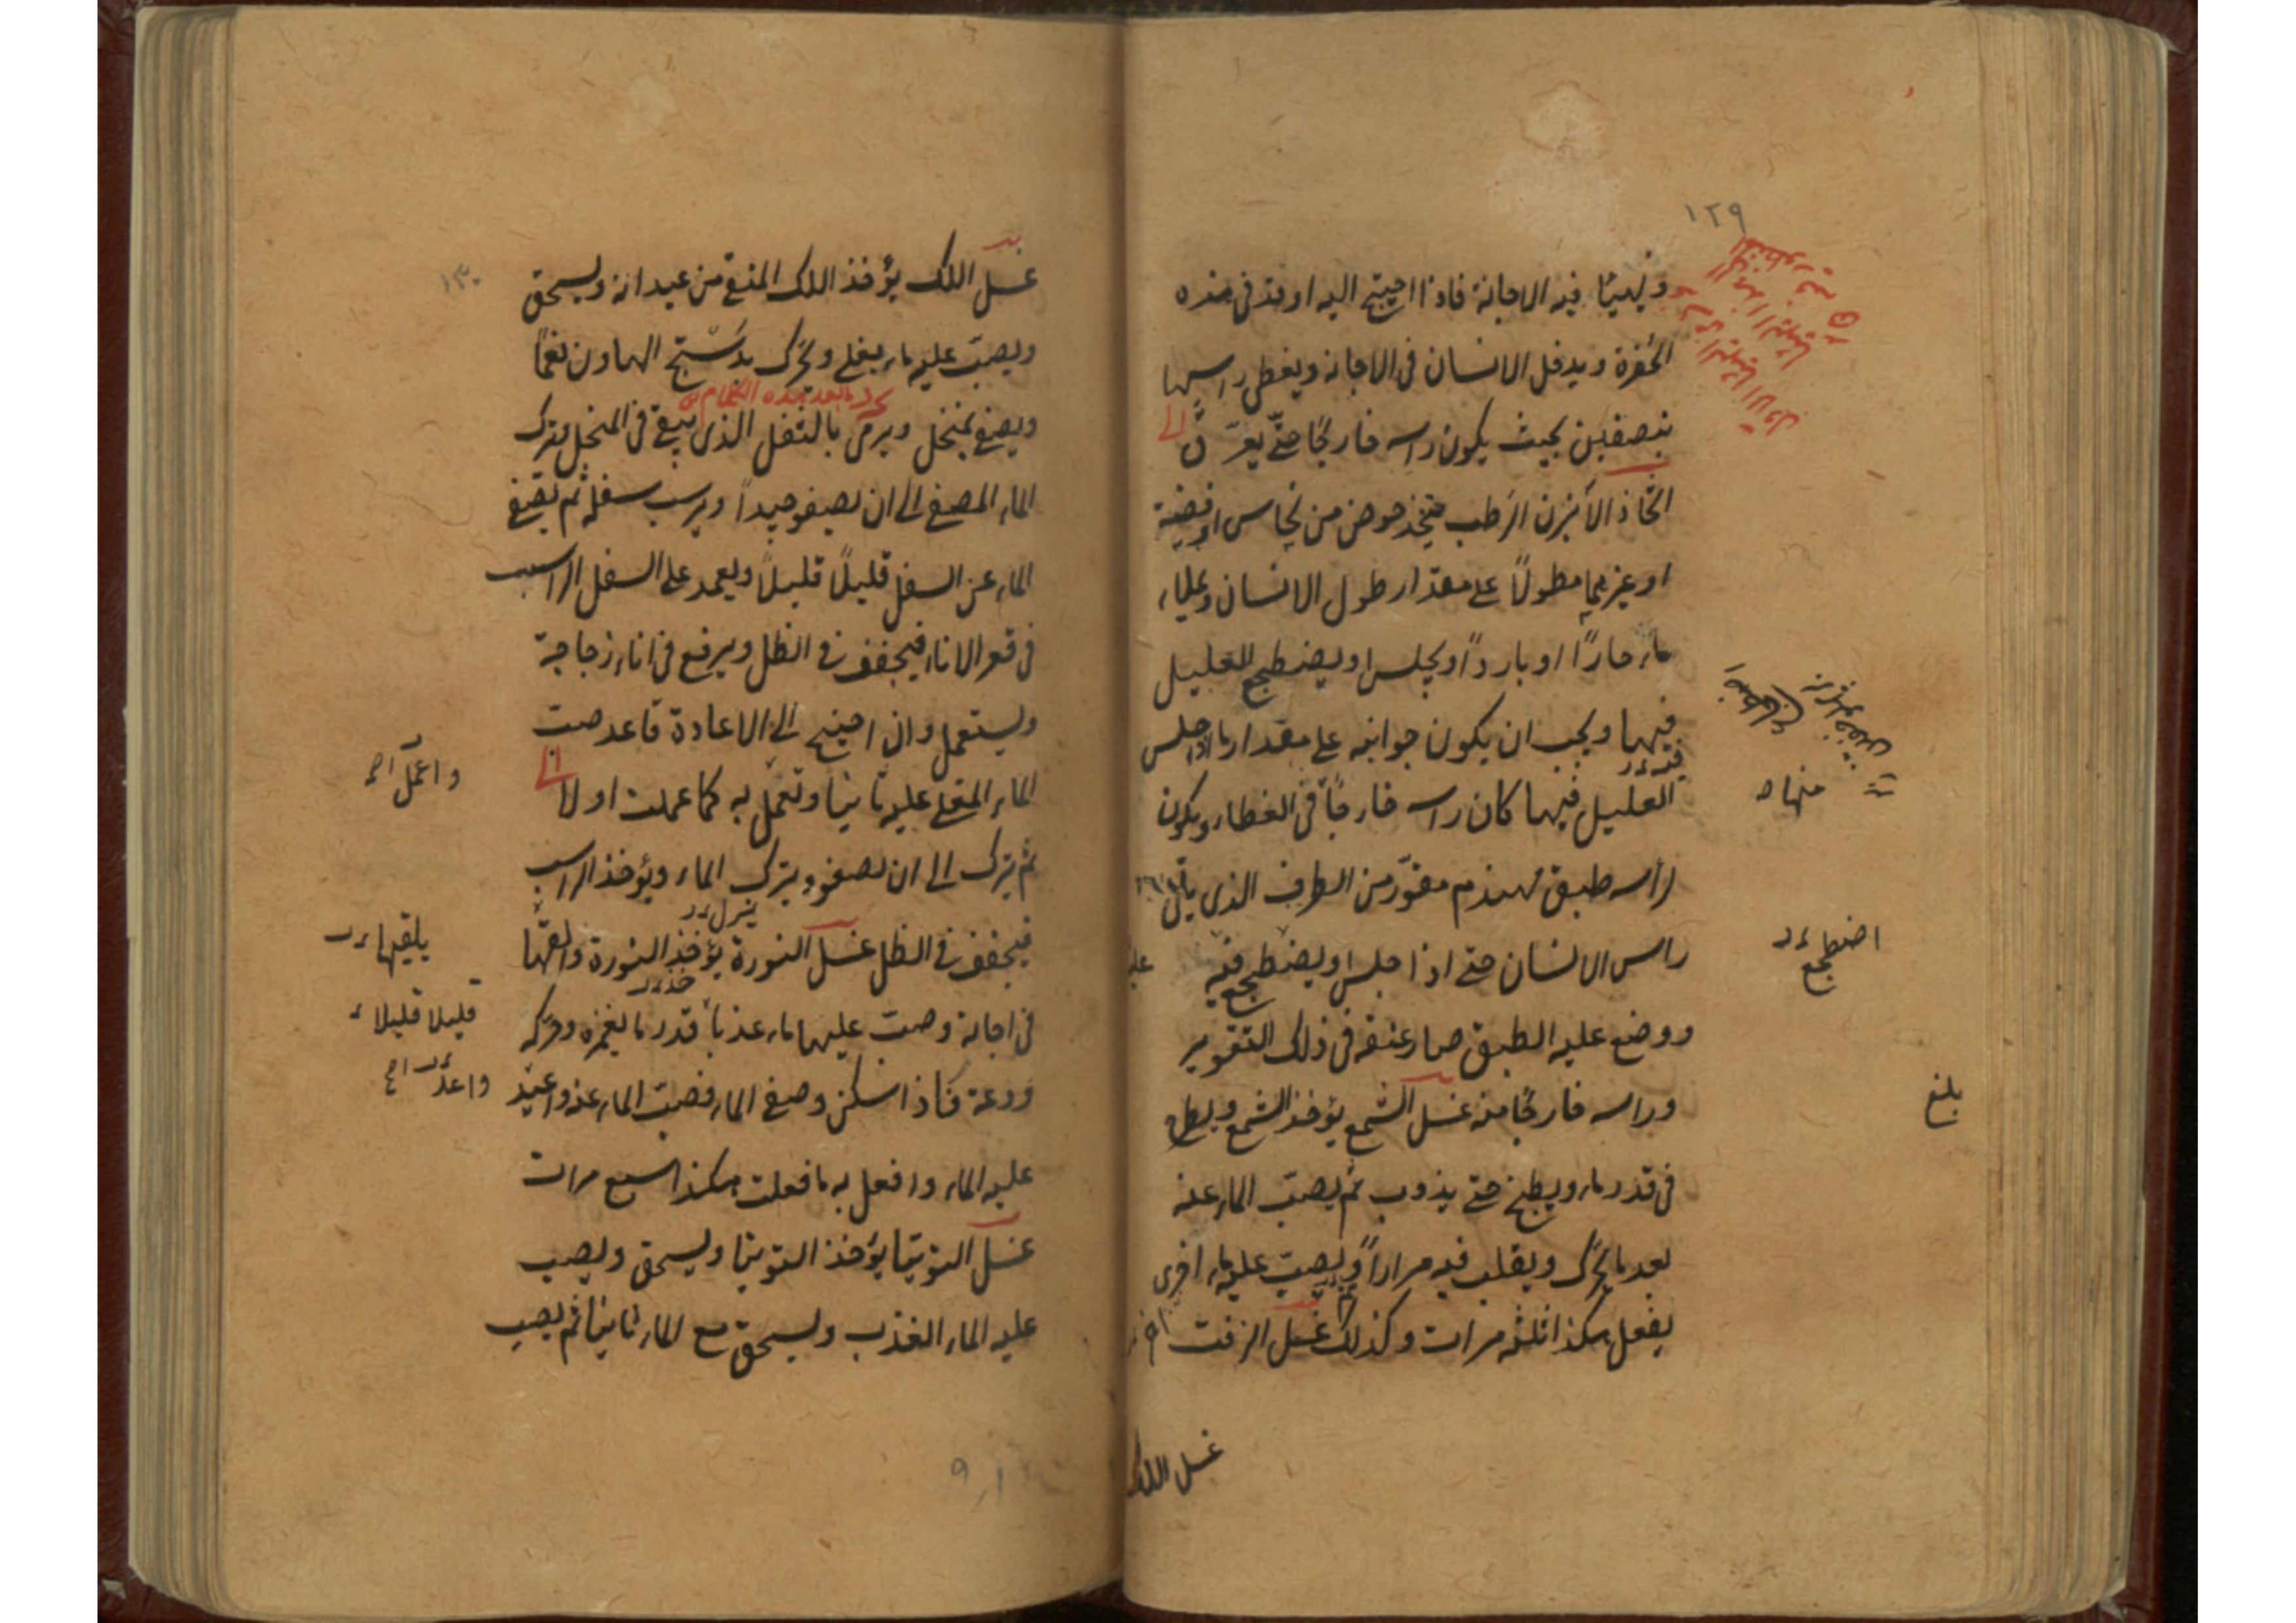 ١٢٩
ويهيأ فيه الاجانة فاذا احتيج اليه اوقد فى هذه
الحفرة ويدخل الانسان فى الاجانة ويغطى راسها
بنصفين بحيث يكون راسه خارجًا حتّى يعرّق
اتّخاذ الآبزن الرَطب يتخذ حوض من نحاس او فضة
او غيرهما مطولًا على مقدار طول الانسان ويملاء
ماء حارًا او باردًا ويجلس او يضطجع العليل
فيها ويجب ان يكون جوانبه على مقدار ما اذا جلس
العليل فيها كان راسه خارجًا فى الغطاء ويكون
لرأسه طبق مهندم مقوّر من الطرف الذى يأتى
راس الانسان حتى اذا جلس او يضطجع فيه
ووضع عليه الطبق صار عنقه فى ذلك التقوير
وراسه خارجًا منه غسل الشمع يؤخذ الشمع ويطرح
فى قدر ماء ويطبخ حتى يذوب ثم يصبّ الماء عنه
بعد ما يحرّك ويقلب فيه مرارًا ويصبّ عليه ماء اخرى
يفعل هكذا ثلثه مرات وكذلك غسل الزفت
منها
اضطجع
بلغ
غسل اللك
١٣٠
غسل اللك يؤخذ اللك المنقى من عيدانه ويسحق
ويصبّ عليه ماء يغلى ويحرّك بدَسْتَج الهاون نعمًا
ويصفى بمنخل ويرمى بالثفل الذى يبقى فى المنخل ويترك
الماء المصفى الى ان يصفو جيداً ويرسب سفله ثم يصفى
الماء عن السفل قليلًا قليلًا ويعمد على السفل الراسب
فى قعر الاناء فيجفف فى الظل ويرفع فى اناء زجاجة
ويستعمل وان احتيج الى الاعادة فاعد صب
الماء المغلى عليه ثانيا وتعمل به كما عملت اولا
ثم يترك الى ان يصفو ويترك الماء ويؤخذ الراسب
فيجفف فى الظل غسل النورة يؤخذ النورة والقها
فى اجانة وصب عليها ماء عذبًا قدر ما يغمره وحركه
ودعه فاذا سكن وصفى الماء فصبّ الماء عنه واعيد
عليه الماء وافعل به ما فعلت هكذا سبع مرات
غسل التوتيا يؤخذ التوتيا ويسحق ويصب
عليه الماء العذب ويسحق مع الماء ثانيًا ثم يصب
واعمل
يلقيها
قليلا قليلا